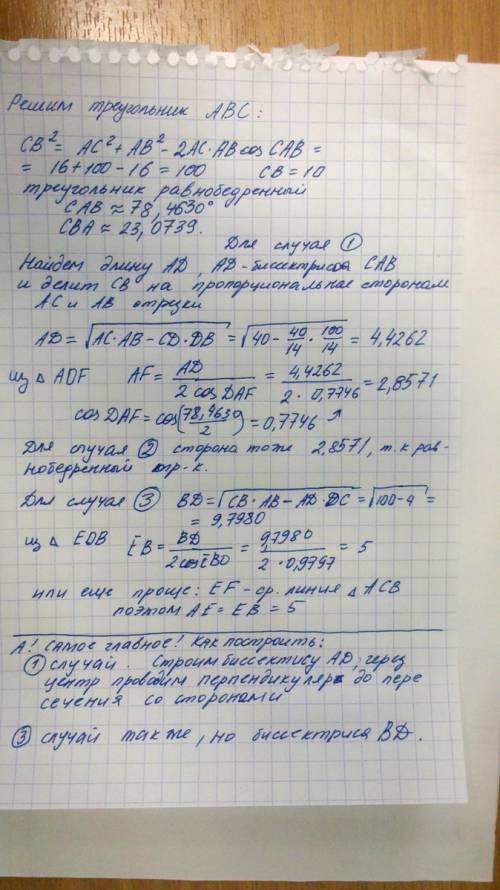 Решим треугольник ABC:
CB² = AC² + AB² - 2AC·AB cos CAB =
= 16 + 100 - 16 = 100 CB = 10
треугольник равнобедренный
CAB ≈ 78,4630°
CBA ≈ 23,0739.
Для случая ①
Найдем длину AD, AD - биссектриса CAB
и делит CB на пропорциональные сторонам
AC и AB отрезки
AD = √(AC·AB - CD·DB) = √(40 - 40/14 · 100/14) = 4,4262
из △ ADF AF = AD / (2 cos DAF) = 4,4262 / (2 · 0,7746) = 2,8571
cos DAF = cos(78,4630/2) = 0,7746
Для случая ② сторона тоже 2,8571, т.к рав-
нобедренный тр-к.
Для случая ③ BD = √(CB·AB - AD·DC) = √(100-4) =
= 9,7980
из △ EDB EB = BD / (2cos EBD) = 9,7980 / (2 · 0,9797) = 5
или еще проще: EF - ср. линия △ ACB
поэтом AE = EB = 5
А! Самое главное! Как построить:
① случай. Строим биссектису AD, через
центр проводим перпендикуляр до пере
сечения со сторонами
③ случай также, но биссектриса BD.